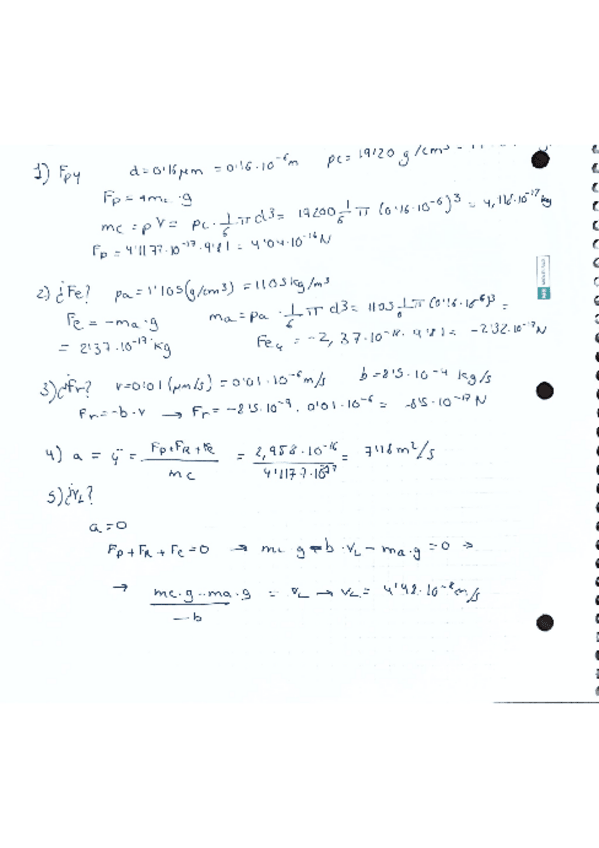 1) Fpy d=0'16μm = 0'16·10⁻⁶m ρc= 19'20 g/cm³
Fp = mc·g
mc = ρV = ρc·1/6 πd³= 19200 1/6 π (0'16·10⁻⁶)³ = 4,116·10⁻¹⁷kg
Fp = 4'1177·10⁻¹⁷·9'81 = 4'04·10⁻¹⁶N
2) ¿Fe? ρa = 1'105(g/cm³) = 1105kg/m³
Fe = -ma·g ma = ρa·1/6 πd³= 1105 1/6 π(0'16·10⁻⁶)³ =
= 2'37·10⁻¹⁸ kg Fey = -2,37·10⁻¹⁸·9'81 = -2'32·10⁻¹⁷N
3) ¿Fr? v=0'01(μm/s) = 0'01·10⁻⁶m/s b=8'5·10⁻⁹ kg/s
Fr=-b·v → Fr= -8'5·10⁻⁹·0'01·10⁻⁶ = -8'5·10⁻¹⁷N
4) a = ÿ = Fp+FR+Fe/mc = 2,958·10⁻¹⁶/4'1177·10⁻¹⁷ = 7'18 m²/s
5) ¿vL?
a=0
Fp+FR+Fe=0 → mc g - b·vL - ma·g = 0 →
→ mc·g - ma·g/-b = vL → vL= 4'42·10⁻⁸m/s